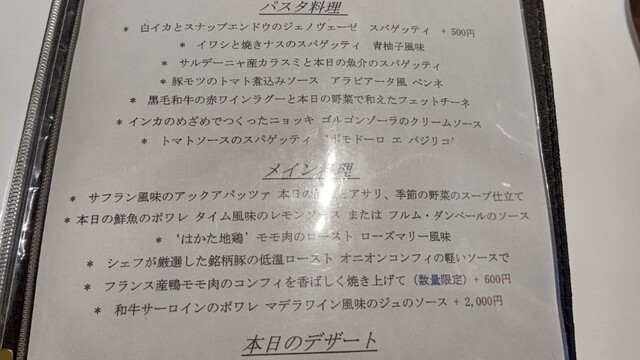 パスタ料理
* 白イカとスナップエンドウのジェノヴェーゼ スパゲッティ + 500円
* イワシと焼きナスのスパゲッティ 青柚子風味
* サルデーニャ産カラスミと本日の魚介のスパゲッティ
* 豚モツのトマト煮込みソース アラビアータ風 ペンネ
* 黒毛和牛の赤ワインラグーと本日の野菜で和えたフェットチーネ
* インカのめざめでつくったニョッキ ゴルゴンゾーラのクリームソース
* トマトソースのスパゲッティ 'ポモドーロ エ バジリコ'
メイン料理
* サフラン風味のアックアパッツァ 本日の とアサリ、季節の野菜のスープ仕立て
* 本日の鮮魚のポワレ タイム風味のレモンソース または フルム・ダンベールのソース
* 'はかた地鶏' モモ肉のロースト ローズマリー風味
* シェフが厳選した銘柄豚の低温ロースト オニオンコンフィの軽いソースで
* フランス産鴨モモ肉のコンフィを香ばしく焼き上げて (数量限定) + 600円
* 和牛サーロインのポワレ マデラワイン風味のジュのソース + 2,000円
本日のデザート